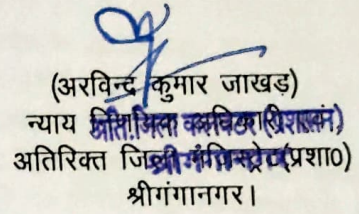 (अरविन्द कुमार जाखड़)
न्याय
अति० जिला कलक्टर (प्रशासन)
अतिरिक्त जिला मजिस्ट्रेट(प्रशा0)
श्रीगंगानगर
श्रीगंगानगर।